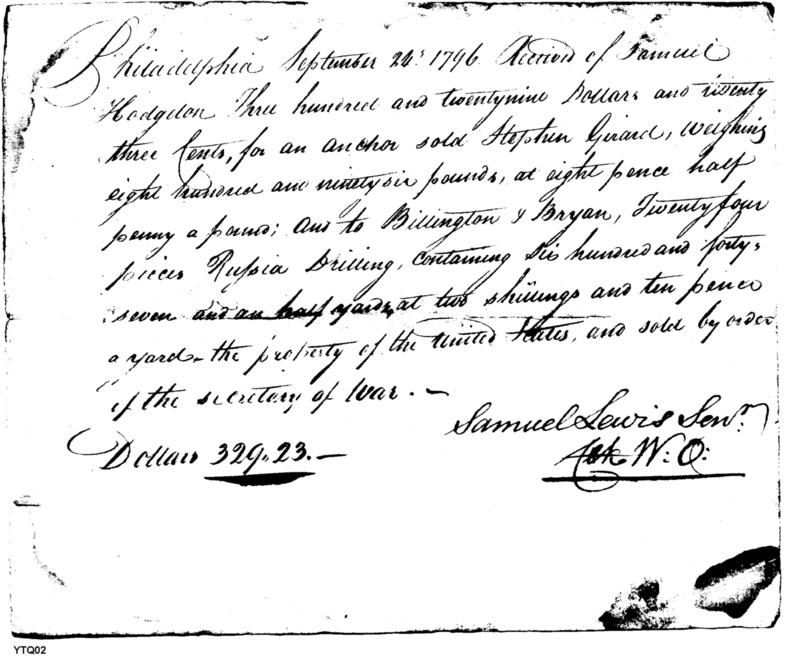 Philadelphia September 24th 1796. Received of Samuel
Hodgdon Three hundred and twentynine Dollars and twenty
three Cents, for an anchor sold Stephen Girard, weighing
eight hundred and ninety six pounds, at eight pence half
penny a pound; and to Billington & Bryan, Twenty four
pieces Russia Drilling, containing Six hundred and forty-
seven and an half yards, at two shillings and ten pence
a yard – the property of the United States, and sold by order
of the secretary of War. –
Samuel Lewis Senr.
Dollars 329.23. –
Clk W: O:
YTQ02